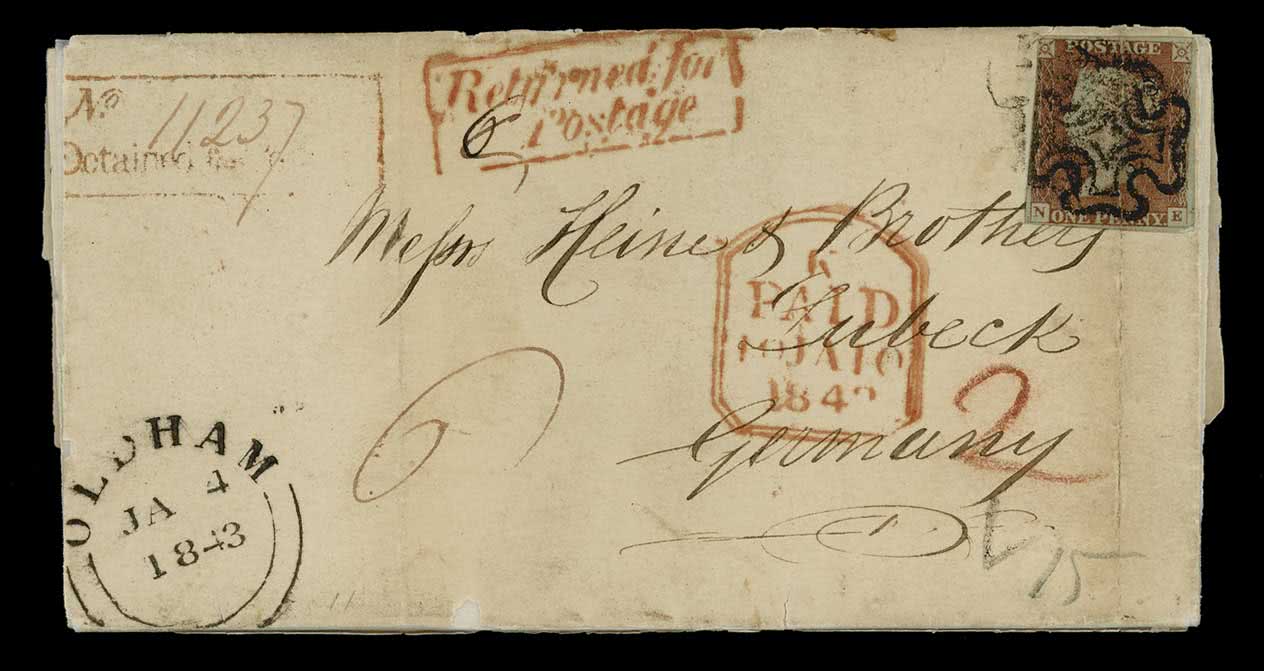 No 11237
Detained for
Returned for
Postage
6
POSTAGE
N ONE PENNY E
Messrs Heine & Brothers
Lubeck
Germany
PAID
10 JA 10
184
2
15
OLDHAM
JA 4
1843